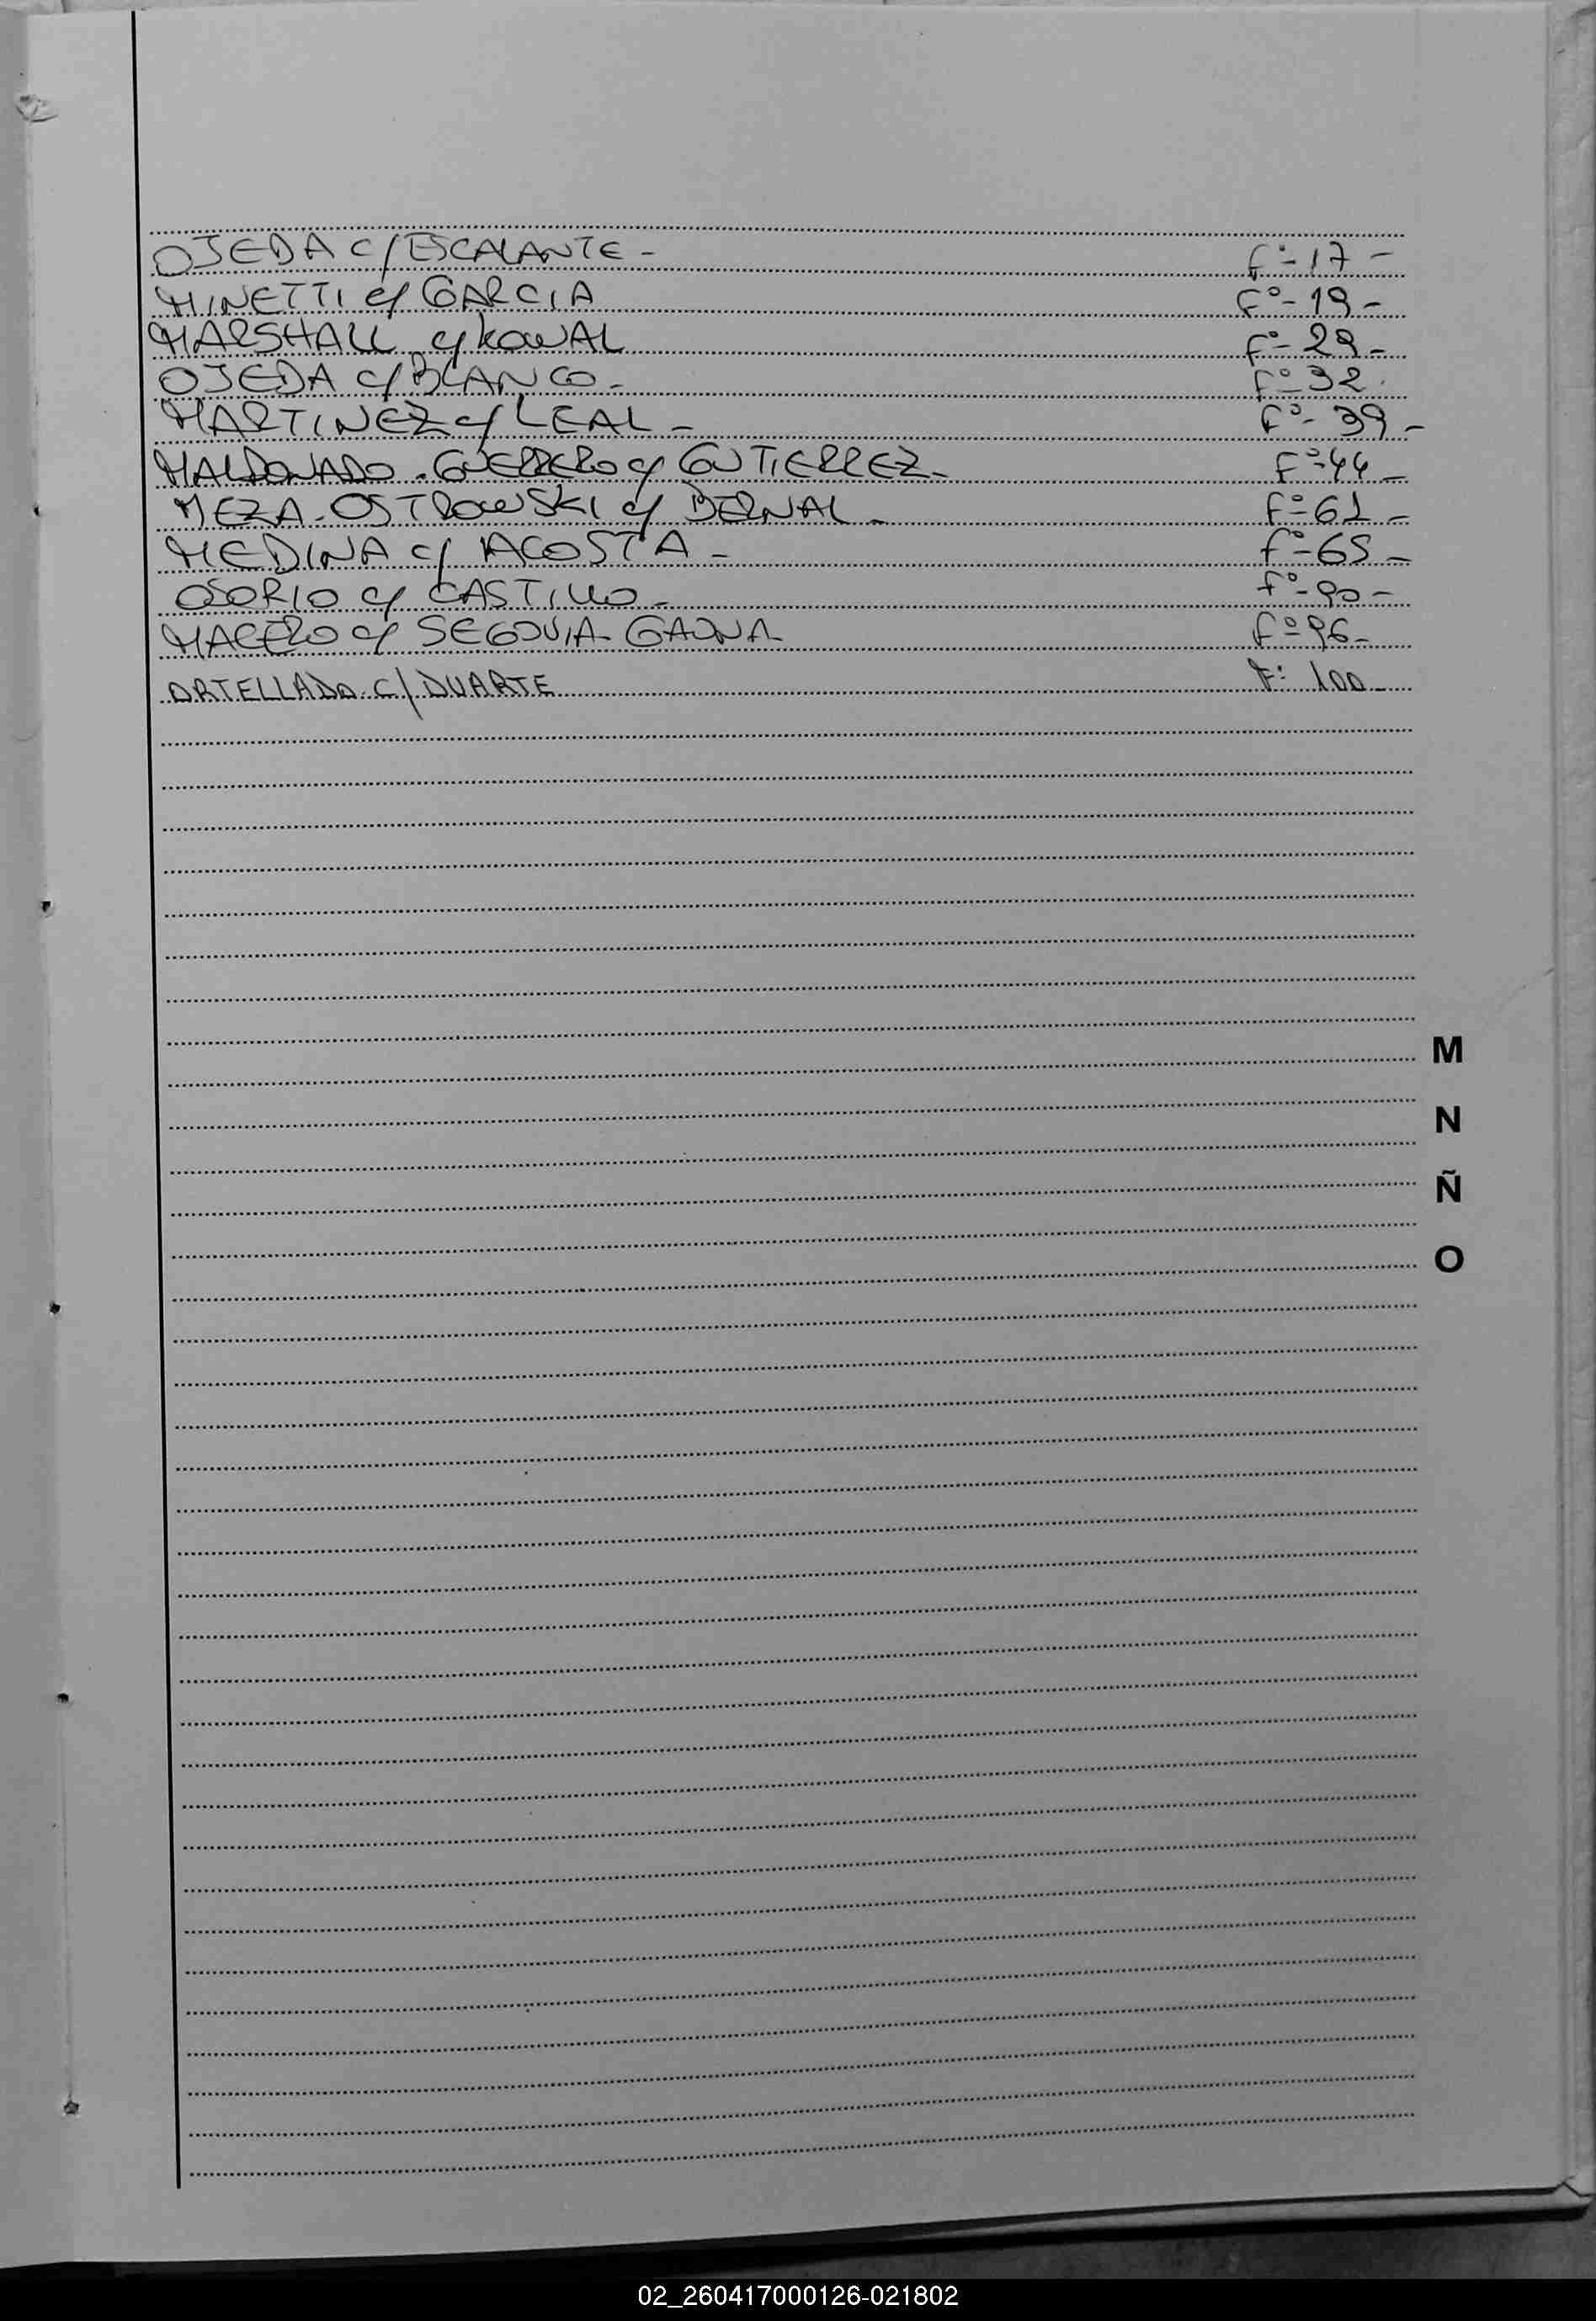 OJEDA C/ ESCALANTE - Fº-17-
MINETTI c/ GARCIA Fº-19-
MARSHALL c/ KOWAL Fº-29-
OJEDA C/ BLANCO- Fº-32.
MARTINEZ c/ LEAL- Fº-39-
MALDONADO-GUERRERO c/ GUTIERREZ- Fº-44-
MEZA-OSTROWSKI c/ BERNAL- Fº-61-
MEDINA c/ ACOSTA- Fº-65-
OSORIO c/ CASTILLO- Fº-90-
MACEÑO c/ SEGOVIA-GAONA Fº-96-
ORTELLADO C/ DUARTE Fº 100-
M
N
Ñ
O
02_260417000126-021802